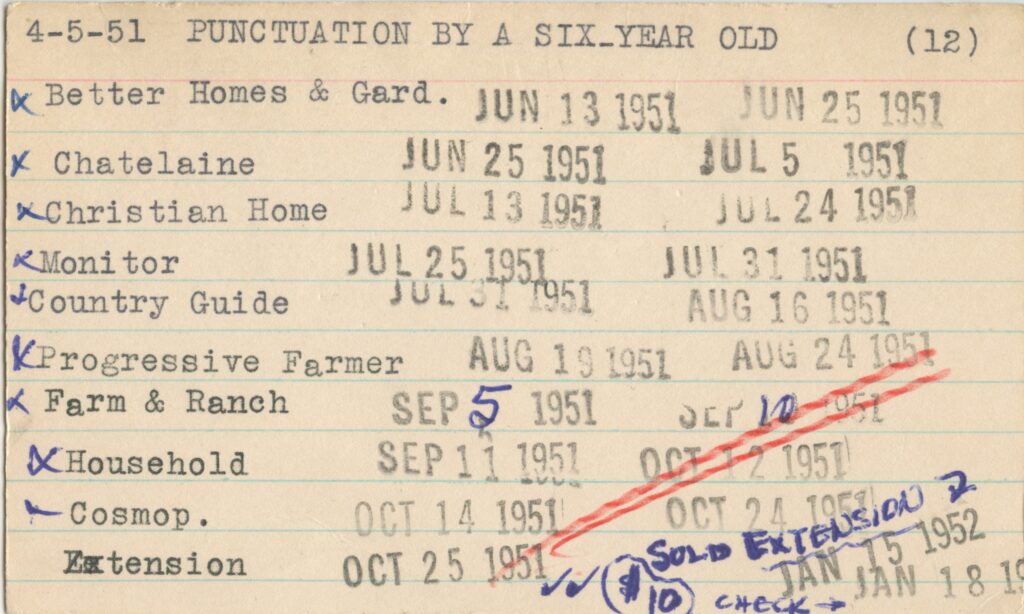 4-5-51 PUNCTUATION BY A SIX-YEAR OLD (12)
x Better Homes & Gard. JUN 13 1951 JUN 25 1951
x Chatelaine JUN 25 1951 JUL 5 1951
x Christian Home JUL 13 1951 JUL 24 1951
x Monitor JUL 25 1951 JUL 31 1951
Country Guide JUL 31 1951 AUG 16 1951
x Progressive Farmer AUG 19 1951 AUG 24 1951
x Farm & Ranch SEP 5 1951 SEP 10 1951
x Household SEP 11 1951 OCT 12 1951
Cosmop. OCT 14 1951 OCT 24 1951
Extension OCT 25 1951 SOLD EXTENSION
JAN 15 1952
$10 CHECK → JAN 18